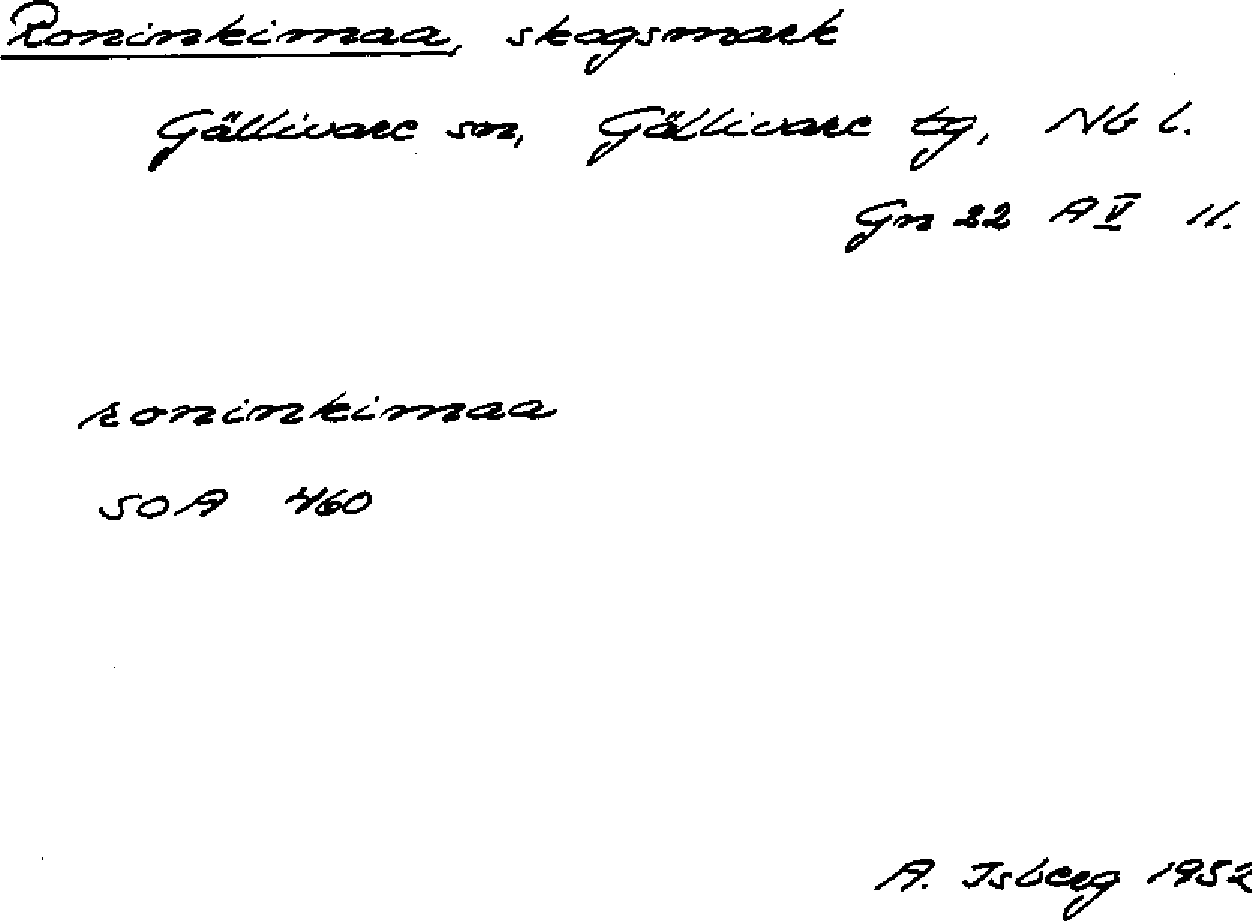 Roninkimaa, skogsmark
Gällivare sn, Gällivare tg, Nb l.
Gn 22 A V 11.
roninkimaa
SOA 460
A. Isberg 1952